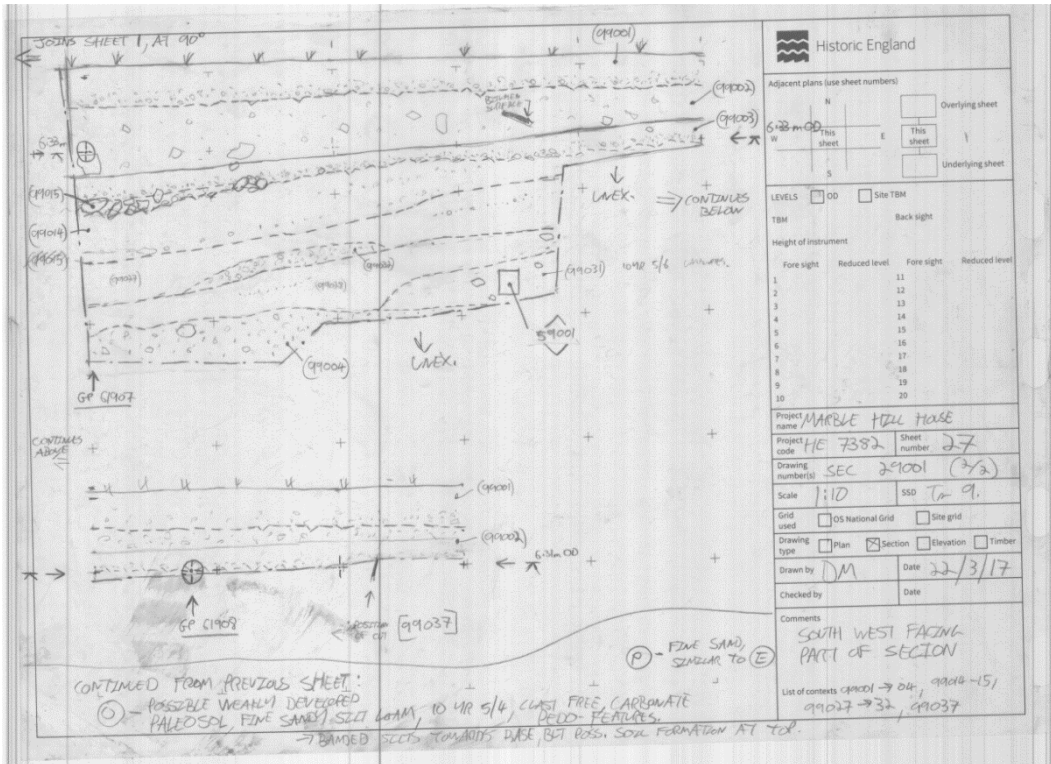 JOINS SHEET 1, AT 90°
(99001)
(99002)
(99003)
6.33m OD
6.33m
(99015)
(99014)
(99015)
UNEX.
CONTINUES
BELOW
(99031) 10YR 5/6
59001
(99004)
UNEX.
GP 61907
CONTINUES
ABOVE
(99001)
(99002)
6.31m OD
GP 61908
POSITION
OF CUT
[99037]
P - FINE SAND,
SIMILAR TO E
CONTINUED FROM PREVIOUS SHEET:
O - POSSIBLE WEAKLY DEVELOPED
PALEOSOL, FINE SANDY SILT LOAM, 10 YR 5/4, CLAST FREE, CARBONATE
PEDO-FEATURES.
→ BANDED SILTS TOWARDS BASE, BUT POSS. SOIL FORMATION AT TOP.
Historic England
Adjacent plans (use sheet numbers)
N
W
This
sheet
E
S
Overlying sheet
This
sheet
Underlying sheet
LEVELS
OD
Site TBM
TBM
Back sight
Height of instrument
Fore sight Reduced level Fore sight Reduced level
1 11
2 12
3 13
4 14
5 15
6 16
7 17
8 18
9 19
10 20
Project
name MARBLE HILL HOUSE
Project
code HE 7382
Sheet
number 27
Drawing
number(s) SEC 29001 (2/2)
Scale 1:10
SSD Tr 9.
Grid
used
OS National Grid
Site grid
Drawing
type
Plan
Section
Elevation
Timber
Drawn by DM
Date 22/3/17
Checked by
Date
Comments
SOUTH WEST FACING
PART OF SECION
List of contexts 99001 → 04, 99014-15,
99027 → 32, 99037